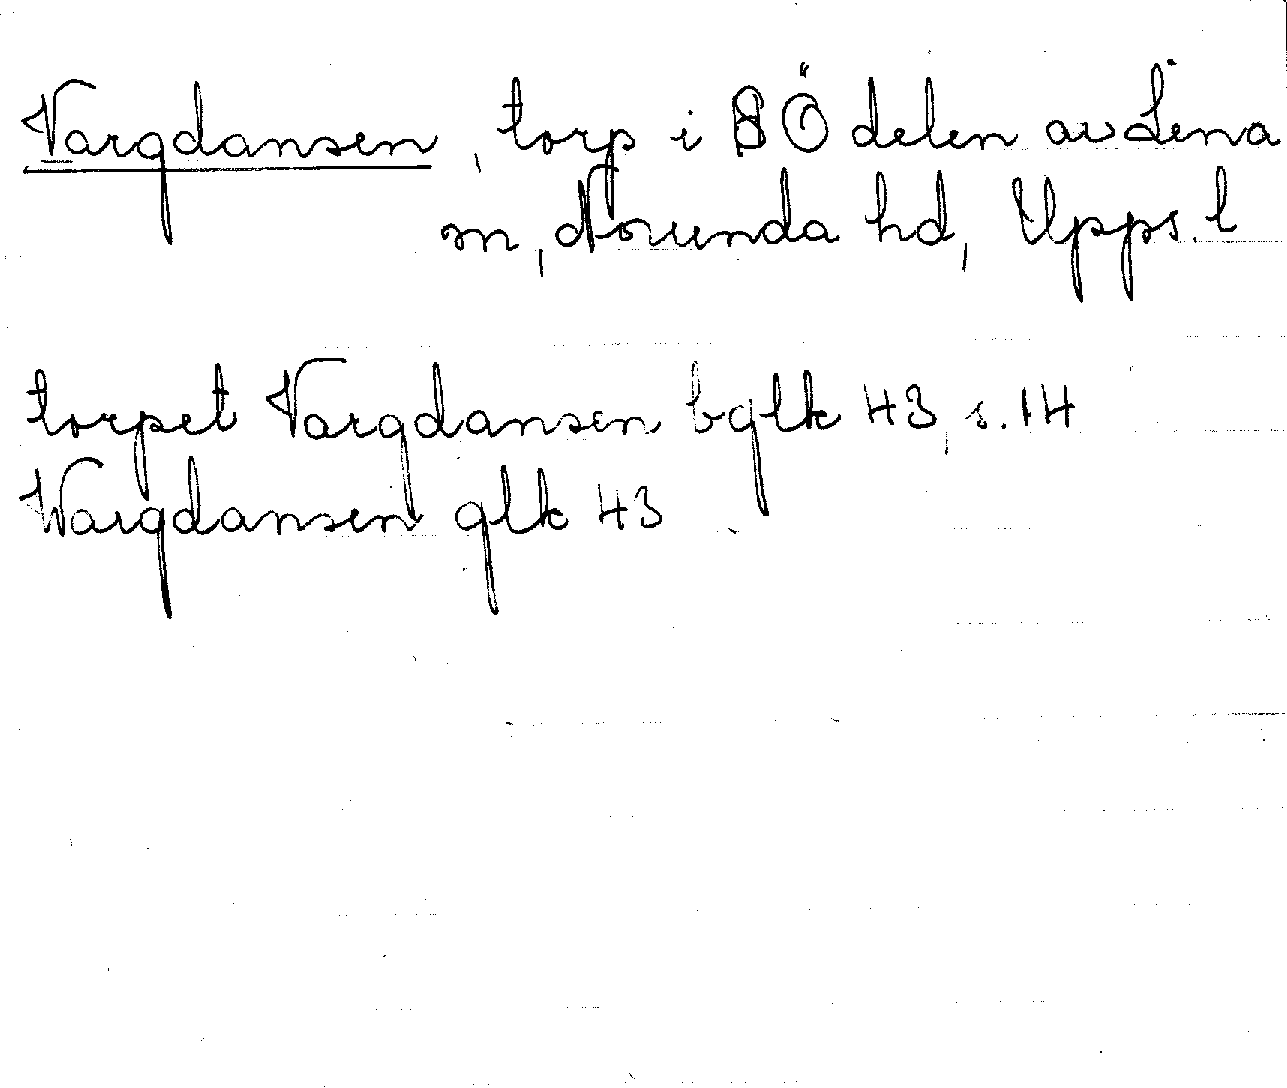 Vargdansen, torp i SÖ delen av Lena
sn, Norunda hd, Upps. l
torpet Vargdansen bglk 43, s. 14
Wargdansen glk 43